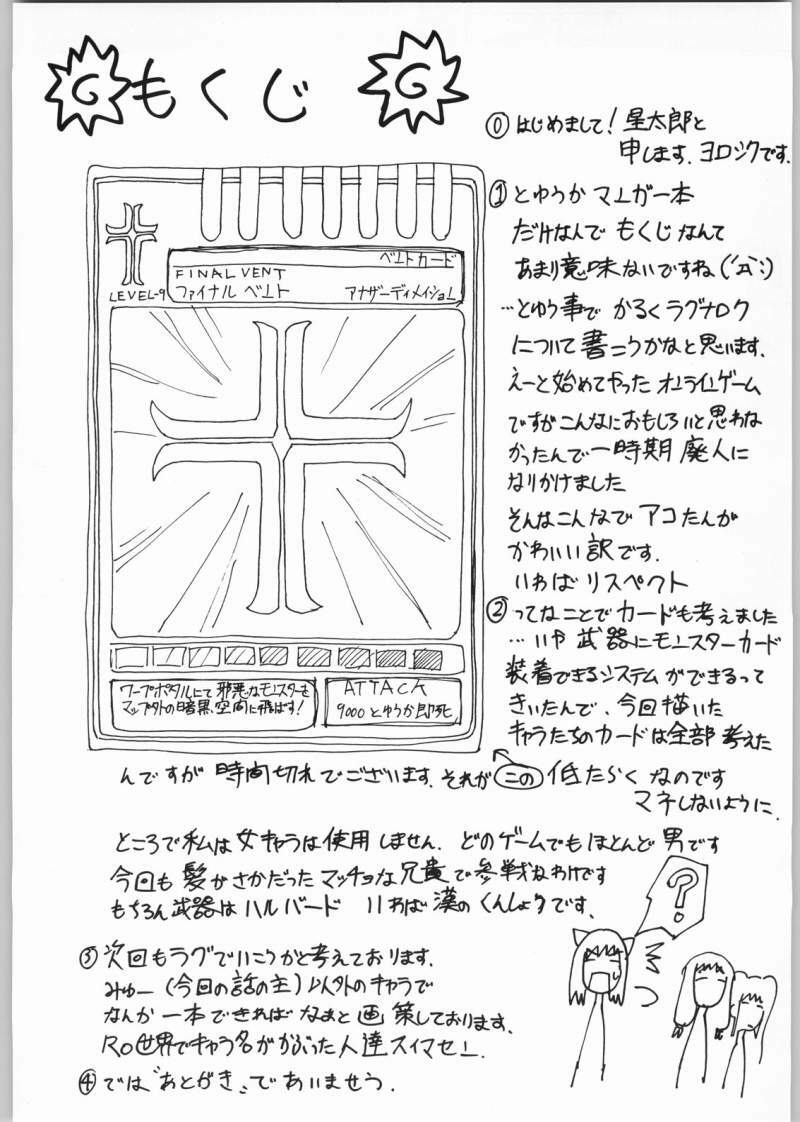 もくじ
⓪ はじめまして！星太郎と
申します。ヨロシクです。
① とゆうかマンガ一本
だけなんで もくじなんて
あまり意味ないですね(´Д`;)
…とゆう事で かるくラグナロク
について書こうかなと思います。
えーと始めてやったオンラインゲーム
ですがこんなにおもしろいと思わな
かったんで一時期 廃人に
なりかけました
そんなこんなで アコたんが
かわいい訳です。
いわば リスペクト
② ってなことでカードも考えました
武器にモンスターカード
装着できるシステムができるって
きいたんで、今回描いた
キャラたちのカードは全部 考えた
んですが 時間切れでございます。それが この 低たらくなのです
マネしないように。
ベントカード
FINAL VENT
ファイナル ベント
アナザーディメイション
LEVEL-9
ワープポタルにて邪悪なモンスターを
マップ外の暗黒空間に飛ばす！
ATTACK
9000とゆうか即死
ところで私は女キャラは使用しません。どのゲームでもほとんど男です
今回も髪がさかだったマッチョな兄貴で参戦なわけです
もちろん武器はハルバード いわば漢のくんしょうです。
?
③ 次回もラグでいこうかと考えております。
みゅー(今回の話の主)以外のキャラで
なんか一本できればなぁと画策しております。
RO世界でキャラ名がかぶった人達スイマセン。
④ では"あとがき"であいませう。